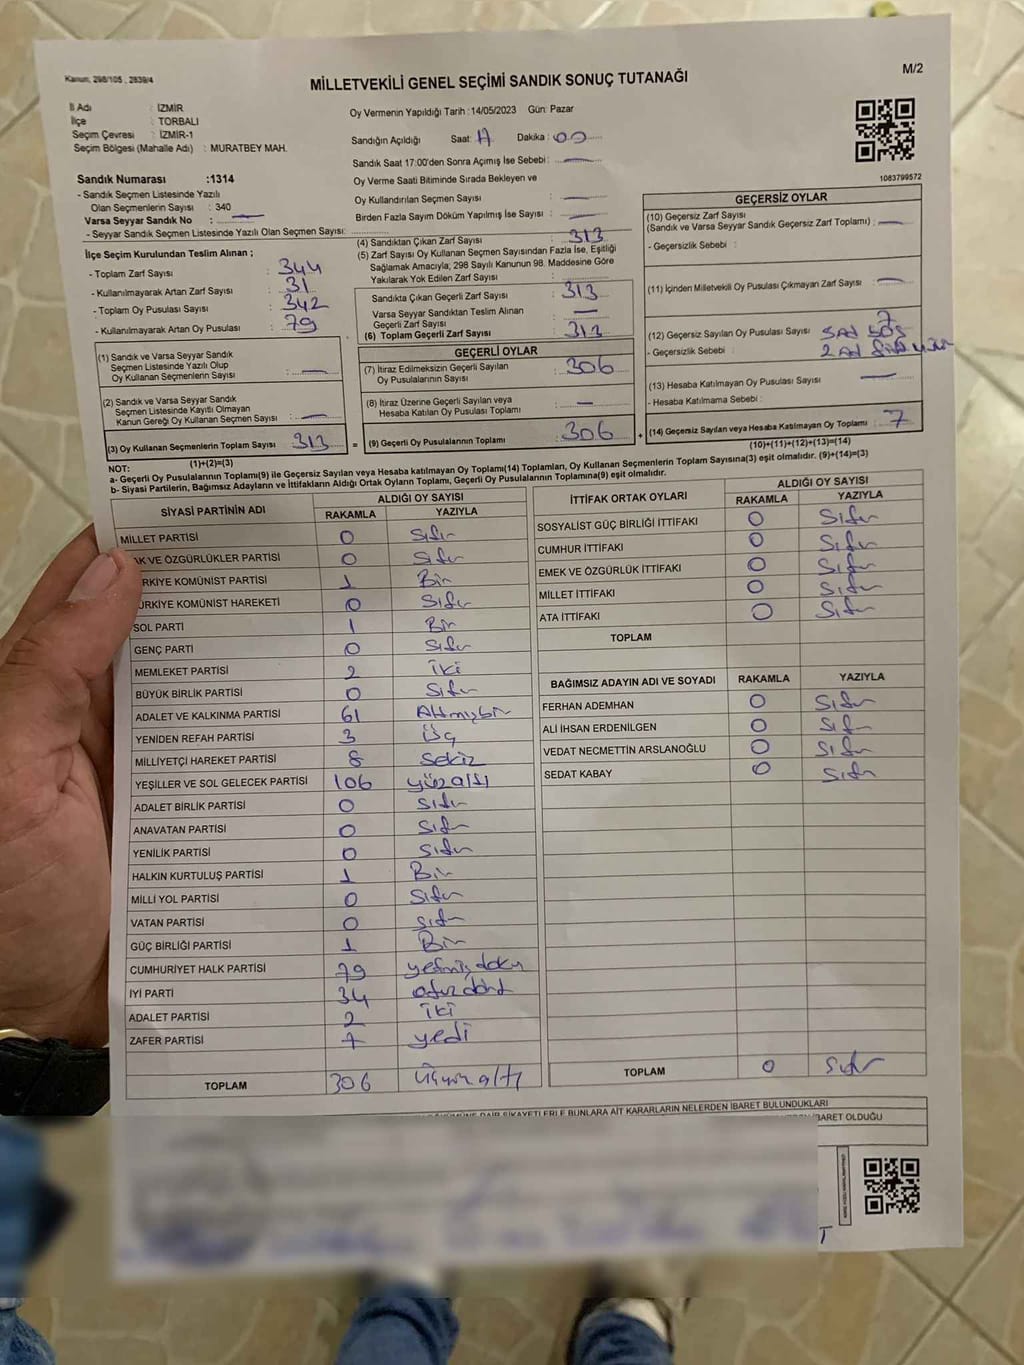 Kanun: 298/105 , 2839/4
MİLLETVEKİLİ GENEL SEÇİMİ SANDIK SONUÇ TUTANAĞI
M/2
İl Adı : İZMİR
İlçe : TORBALI
Seçim Çevresi : İZMİR-1
Seçim Bölgesi (Mahalle Adı) : MURATBEY MAH.
Oy Vermenin Yapıldığı Tarih :14/05/2023 Gün: Pazar
Sandığın Açıldığı Saat: Dakika : 00
Sandık Saat 17:00'den Sonra Açımış İse Sebebi : —
Oy Verme Saati Bitiminde Sırada Bekleyen ve
Oy Kullandırılan Seçmen Sayısı : —
Birden Fazla Sayım Döküm Yapılmış İse Sayısı : —
1083799572
Sandık Numarası :1314
- Sandık Seçmen Listesinde Yazılı
Olan Seçmenlerin Sayısı : 340
Varsa Seyyar Sandık No : —
- Seyyar Sandık Seçmen Listesinde Yazılı Olan Seçmen Sayısı:
İlçe Seçim Kurulundan Teslim Alınan ;
- Toplam Zarf Sayısı : 344
- Kullanılmayarak Artan Zarf Sayısı : 31
- Toplam Oy Pusulası Sayısı : 342
- Kullanılmayarak Artan Oy Pusulası : 79
(1) Sandık ve Varsa Seyyar Sandık
Seçmen Listesinde Yazılı Olup
Oy Kullanan Seçmenlerin Sayısı : —
(2) Sandık ve Varsa Seyyar Sandık
Seçmen Listesinde Kayıtlı Olmayan
Kanun Gereği Oy Kullanan Seçmen Sayısı : —
(3) Oy Kullanan Seçmenlerin Toplam Sayısı : 313
(1)+(2)=(3)
(4) Sandıktan Çıkan Zarf Sayısı : 313
(5) Zarf Sayısı Oy Kullanan Seçmen Sayısından Fazla İse, Eşitliği
Sağlamak Amacıyla, 298 Sayılı Kanunun 98. Maddesine Göre
Yakılarak Yok Edilen Zarf Sayısı :
Sandıkta Çıkan Geçerli Zarf Sayısı : 313
Varsa Seyyar Sandıktan Teslim Alınan
Geçerli Zarf Sayısı : —
(6) Toplam Geçerli Zarf Sayısı : 313
GEÇERLİ OYLAR
(7) İtiraz Edilmeksizin Geçerli Sayılan
Oy Pusulalarının Sayısı : 306
(8) İtiraz Üzerine Geçerli Sayılan veya
Hesaba Katılan Oy Pusulası Toplamı : —
= (9) Geçerli Oy Pusulalarının Toplamı : 306
GEÇERSİZ OYLAR
(10) Geçersiz Zarf Sayısı
(Sandık ve Varsa Seyyar Sandık Geçersiz Zarf Toplamı) : —
- Geçersizlik Sebebi :
(11) İçinden Milletvekili Oy Pusulası Çıkmayan Zarf Sayısı : —
(12) Geçersiz Sayılan Oy Pusulası Sayısı : 7
- Geçersizlik Sebebi :
(13) Hesaba Katılmayan Oy Pusulası Sayısı : —
- Hesaba Katılmama Sebebi :
+ (14) Geçersiz Sayılan veya Hesaba Katılmayan Oy Toplamı : 7
(10)+(11)+(12)+(13)=(14)
NOT:
a- Geçerli Oy Pusulalarının Toplamı(9) ile Geçersiz Sayılan veya Hesaba katılmayan Oy Toplamı(14) Toplamları, Oy Kullanan Seçmenlerin Toplam Sayısına(3) eşit olmalıdır. (9)+(14)=(3)
b- Siyasi Partilerin, Bağımsız Adayların ve İttifakların Aldığı Ortak Oyların Toplamı, Geçerli Oy Pusulalarının Toplamına(9) eşit olmalıdır.
SİYASİ PARTİNİN ADI ALDIĞI OY SAYISI
RAKAMLA YAZIYLA
MİLLET PARTİSİ 0 Sıfır
AK VE ÖZGÜRLÜKLER PARTİSİ 0 Sıfır
RKİYE KOMÜNİST PARTİSİ 1 Bir
ÜRKİYE KOMÜNİST HAREKETİ 0 Sıfır
SOL PARTİ 1 Bir
GENÇ PARTİ 0 Sıfır
MEMLEKET PARTİSİ 2 iki
BÜYÜK BİRLİK PARTİSİ 0 Sıfır
ADALET VE KALKINMA PARTİSİ 61 Altmışbir
YENİDEN REFAH PARTİSİ 3 Üç
MİLLİYETÇİ HAREKET PARTİSİ 8 Sekiz
YEŞİLLER VE SOL GELECEK PARTİSİ 106 yüzaltı
ADALET BİRLİK PARTİSİ 0 Sıfır
ANAVATAN PARTİSİ 0 Sıfır
YENİLİK PARTİSİ 0 Sıfır
HALKIN KURTULUŞ PARTİSİ 1 Bir
MİLLİ YOL PARTİSİ 0 Sıfır
VATAN PARTİSİ 0 Sıfır
GÜÇ BİRLİĞİ PARTİSİ 1 Bir
CUMHURİYET HALK PARTİSİ 79 yetmişdoku
İYİ PARTİ 34 otuzdört
ADALET PARTİSİ 2 iki
ZAFER PARTİSİ 7 yedi
TOPLAM 306 Üçyüzaltı
İTTİFAK ORTAK OYLARI ALDIĞI OY SAYISI
RAKAMLA YAZIYLA
SOSYALİST GÜÇ BİRLİĞİ İTTİFAKI 0 Sıfır
CUMHUR İTTİFAKI 0 Sıfır
EMEK VE ÖZGÜRLÜK İTTİFAKI 0 Sıfır
MİLLET İTTİFAKI 0 Sıfır
ATA İTTİFAKI 0 Sıfır
TOPLAM
BAĞIMSIZ ADAYIN ADI VE SOYADI RAKAMLA YAZIYLA
FERHAN ADEMHAN 0 Sıfır
ALİ İHSAN ERDENİLGEN 0 Sıfır
VEDAT NECMETTİN ARSLANOĞLU 0 Sıfır
SEDAT KABAY 0 Sıfır
TOPLAM 0 Sıfır
ŞİKAYETLERLE BUNLARA AİT KARARLARIN NELERDEN İBARET BULUNDUKLARI
İBARET OLDUĞU